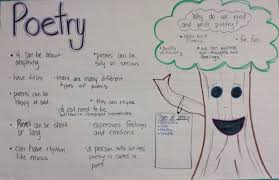 Poetry
• it can be about
anything
• have titles
• poems can be
happy or sad
• Poems can be short
or long
• Can have rhythm
like music.
• poems can be
silly or serious
• there are many different
types of poems
• they can rhyme
• do not need to be
written in complete sentences
• expresses feelings
and emotions
• a person who writes
poetry is called a
poet
Why do we read
and write poetry?
• for fun
• builds
vocabulary
• we can express
our thoughts and
feelings!
Types of poetry